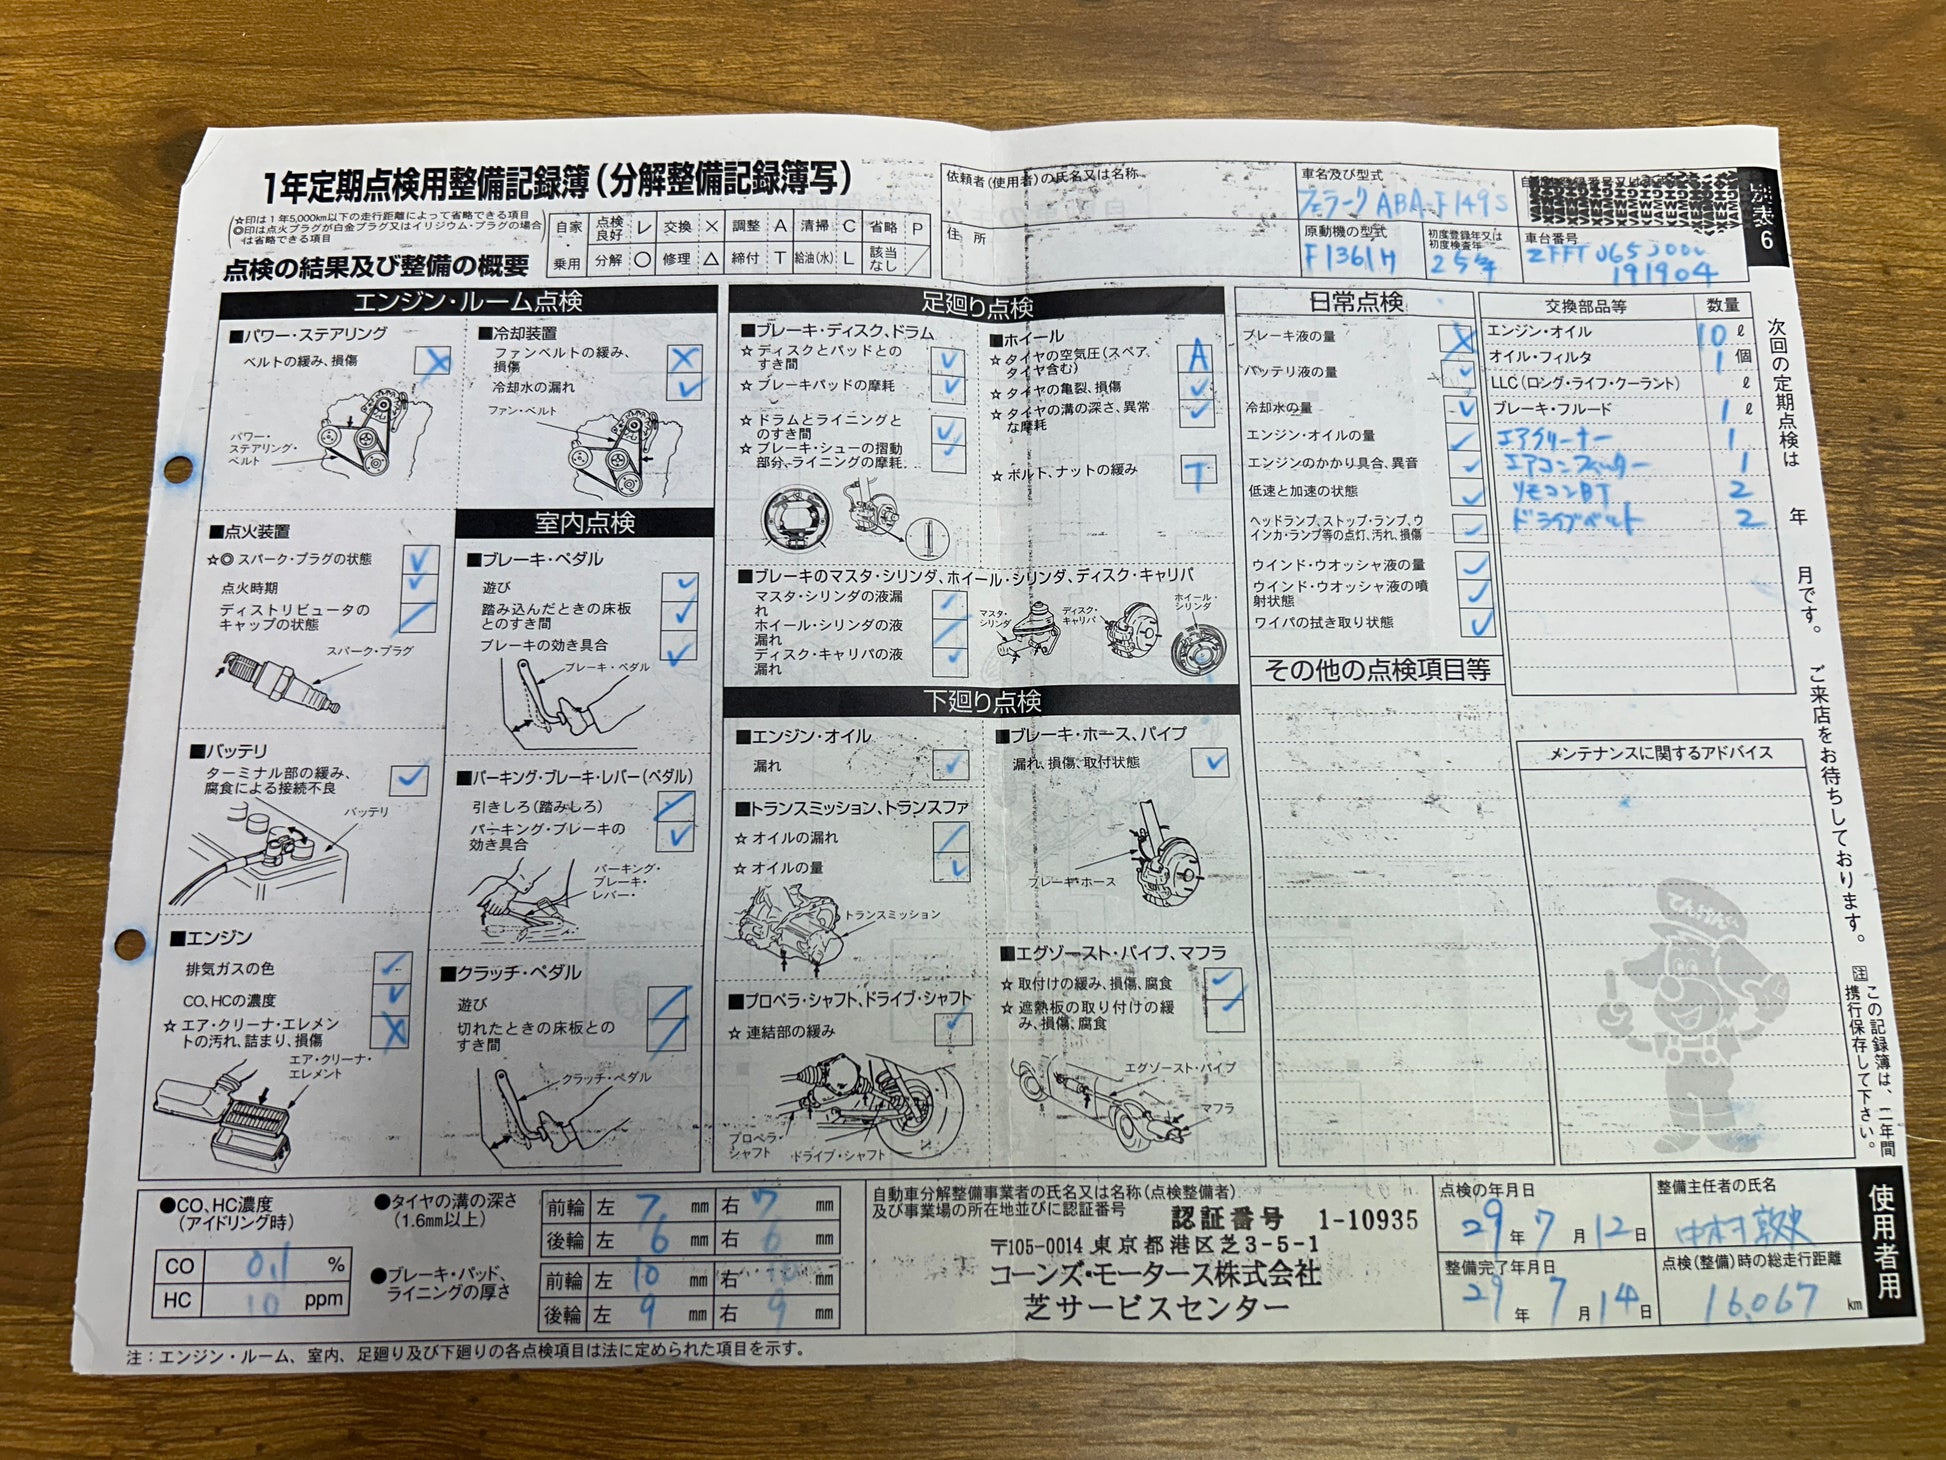 1年定期点検用整備記録簿(分解整備記録簿写)
☆印は1年5,000km以下の走行距離によって省略できる項目
◎印は点火プラグが白金プラグ又はイリジウム・プラグの場合は省略できる項目
点検の結果及び整備の概要
自家・乗用
点検良好 レ 交換 × 調整 A 清掃 C 省略 P
分解 ○ 修理 △ 締付 T 給油(水) L 該当なし ／
依頼者(使用者)の氏名又は名称
住 所
車名及び型式
フェラーリ ABA-F149S
原動機の型式
F136IH
初度登録年又は初度検査年
25年
車台番号
191904
別表6
エンジン・ルーム点検
■パワー・ステアリング
ベルトの緩み、損傷 ×
パワー・ステアリング・ベルト
■冷却装置
ファンベルトの緩み、損傷 ×
冷却水の漏れ レ
ファン・ベルト
■点火装置
☆◎スパーク・プラグの状態 レ
点火時期 レ
ディストリビュータのキャップの状態 ／
スパーク・プラグ
■バッテリ
ターミナル部の緩み、腐食による接続不良 レ
バッテリ
■エンジン
排気ガスの色 レ
CO、HCの濃度 レ
☆エア・クリーナ・エレメントの汚れ、詰まり、損傷 ×
エア・クリーナ・エレメント
室内点検
■ブレーキ・ペダル
遊び レ
踏み込んだときの床板とのすき間 レ
ブレーキの効き具合 レ
ブレーキ・ペダル
■パーキング・ブレーキ・レバー(ペダル)
引きしろ(踏みしろ) ／
パーキング・ブレーキの効き具合 レ
パーキング・ブレーキ・レバー・
■クラッチ・ペダル
遊び ／
切れたときの床板とのすき間 ／
クラッチ・ペダル
足廻り点検
■ブレーキ・ディスク、ドラム
☆ディスクとパッドとのすき間 レ
☆ブレーキパッドの摩耗 レ
☆ドラムとライニングとのすき間 レ
☆ブレーキ・シューの摺動部分、ライニングの摩耗 レ
■ホイール
☆タイヤの空気圧(スペア、タイヤ含む) A
☆タイヤの亀裂、損傷 レ
☆タイヤの溝の深さ、異常な摩耗 レ
☆ボルト、ナットの緩み T
■ブレーキのマスタ・シリンダ、ホイール・シリンダ、ディスク・キャリパ
マスタ・シリンダの液漏れ
ホイール・シリンダの液漏れ ／
ディスク・キャリパの液漏れ レ
マスタ・シリンダ
ディスク・キャリパ
ホイール・シリンダ
下廻り点検
■エンジン・オイル
漏れ レ
■ブレーキ・ホース、パイプ
漏れ、損傷、取付状態 レ
ブレーキ・ホース
■トランスミッション、トランスファ
☆オイルの漏れ ／
☆オイルの量 レ
トランスミッション
■プロペラ・シャフト、ドライブ・シャフト
☆連結部の緩み レ
プロペラ・シャフト
ドライブ・シャフト
■エグゾースト・パイプ、マフラ
☆取付けの緩み、損傷、腐食 レ
☆遮熱板の取り付けの緩み、損傷、腐食 レ
エグゾースト・パイプ
マフラ
日常点検
ブレーキ液の量 ×
バッテリ液の量 レ
冷却水の量 レ
エンジン・オイルの量 レ
エンジンのかかり具合、異音 レ
低速と加速の状態 レ
ヘッドランプ、ストップ・ランプ、ウインカ・ランプ等の点灯、汚れ、損傷 レ
ウインド・ウオッシャ液の量 レ
ウインド・ウオッシャ液の噴射状態 レ
ワイパの拭き取り状態 レ
その他の点検項目等
交換部品等 数量
エンジン・オイル 10 ℓ
オイル・フィルタ 1 個
LLC(ロング・ライフ・クーラント) ℓ
ブレーキ・フルード 1 ℓ
エアクリーナー 1
エアコンフィルター 1
リモコンBT 2
ドライブベルト 2
メンテナンスに関するアドバイス
てんけんくん
次回の定期点検は 年 月です。 ご来店をお待ちしております。
注 この記録簿は、二年間携行保存して下さい。
●CO、HC濃度(アイドリング時)
CO 0.1 %
HC 10 ppm
●タイヤの溝の深さ(1.6mm以上)
前輪 左 7 mm 右 7 mm
後輪 左 6 mm 右 6 mm
●ブレーキ・パッド、ライニングの厚さ
前輪 左 10 mm 右 10 mm
後輪 左 9 mm 右 9 mm
自動車分解整備事業者の氏名又は名称(点検整備者)及び事業場の所在地並びに認証番号
認証番号 1-10935
〒105-0014 東京都港区芝3-5-1
コーンズ・モータース株式会社
芝サービスセンター
点検の年月日
29年 7月 12日
整備完了年月日
29年 7月 14日
整備主任者の氏名
中村敦史
点検(整備)時の総走行距離
16,067 km
使用者用
注：エンジン・ルーム、室内、足廻り及び下廻りの各点検項目は法に定められた項目を示す。